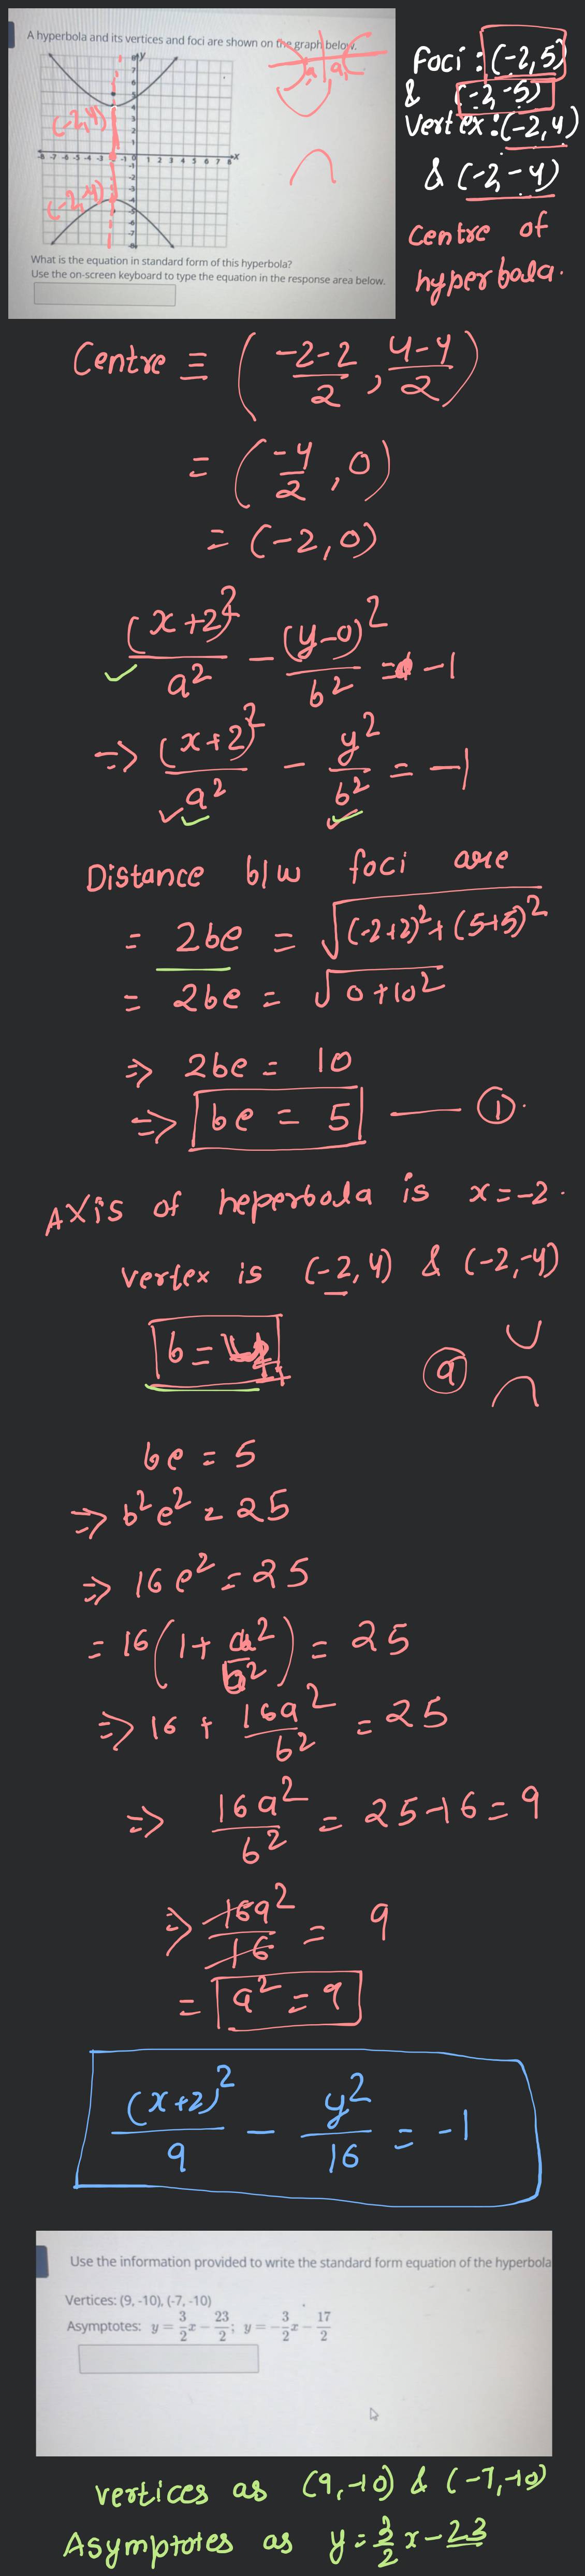 A hyperbola and its vertices and foci are shown on the graph below.
(-2,4)
(-2,-4)
What is the equation in standard form of this hyperbola?
Use the on-screen keyboard to type the equation in the response area below.
Foci : (-2,5)
& (-2,-5)
Vertex :(-2,4)
& (-2,-4)
Centre of
hyperbola.
Centre ≡ ( (-2-2)/2 , (4-4)/2 )
= ( -4/2 , 0 )
= (-2,0)
(x+2)²/a² - (y-0)²/b² = -1
=> (x+2)²/a² - y²/b² = -1
Distance b/w foci are
= 2be = √((-2+2)²+(5+5)²)
= 2be = √(0+10²)
=> 2be = 10
=> be = 5 — ①.
Axis of heperbola is x=-2.
vertex is (-2,4) & (-2,-4)
b = 4
a
be = 5
=> b²e² = 25
=> 16e² = 25
= 16(1+a²/b²) = 25
=> 16 + 16a²/b² = 25
=> 16a²/b² = 25-16 = 9
=> 16a²/16 = 9
= a² = 9
(x+2)²/9 - y²/16 = -1
Use the information provided to write the standard form equation of the hyperbola
Vertices: (9, -10), (-7, -10)
Asymptotes: y = 3/2x - 23/2; y = -3/2x - 17/2
vertices as (9,-10) & (-7,-10)
Asymptotes as y = 3/2 x - 23